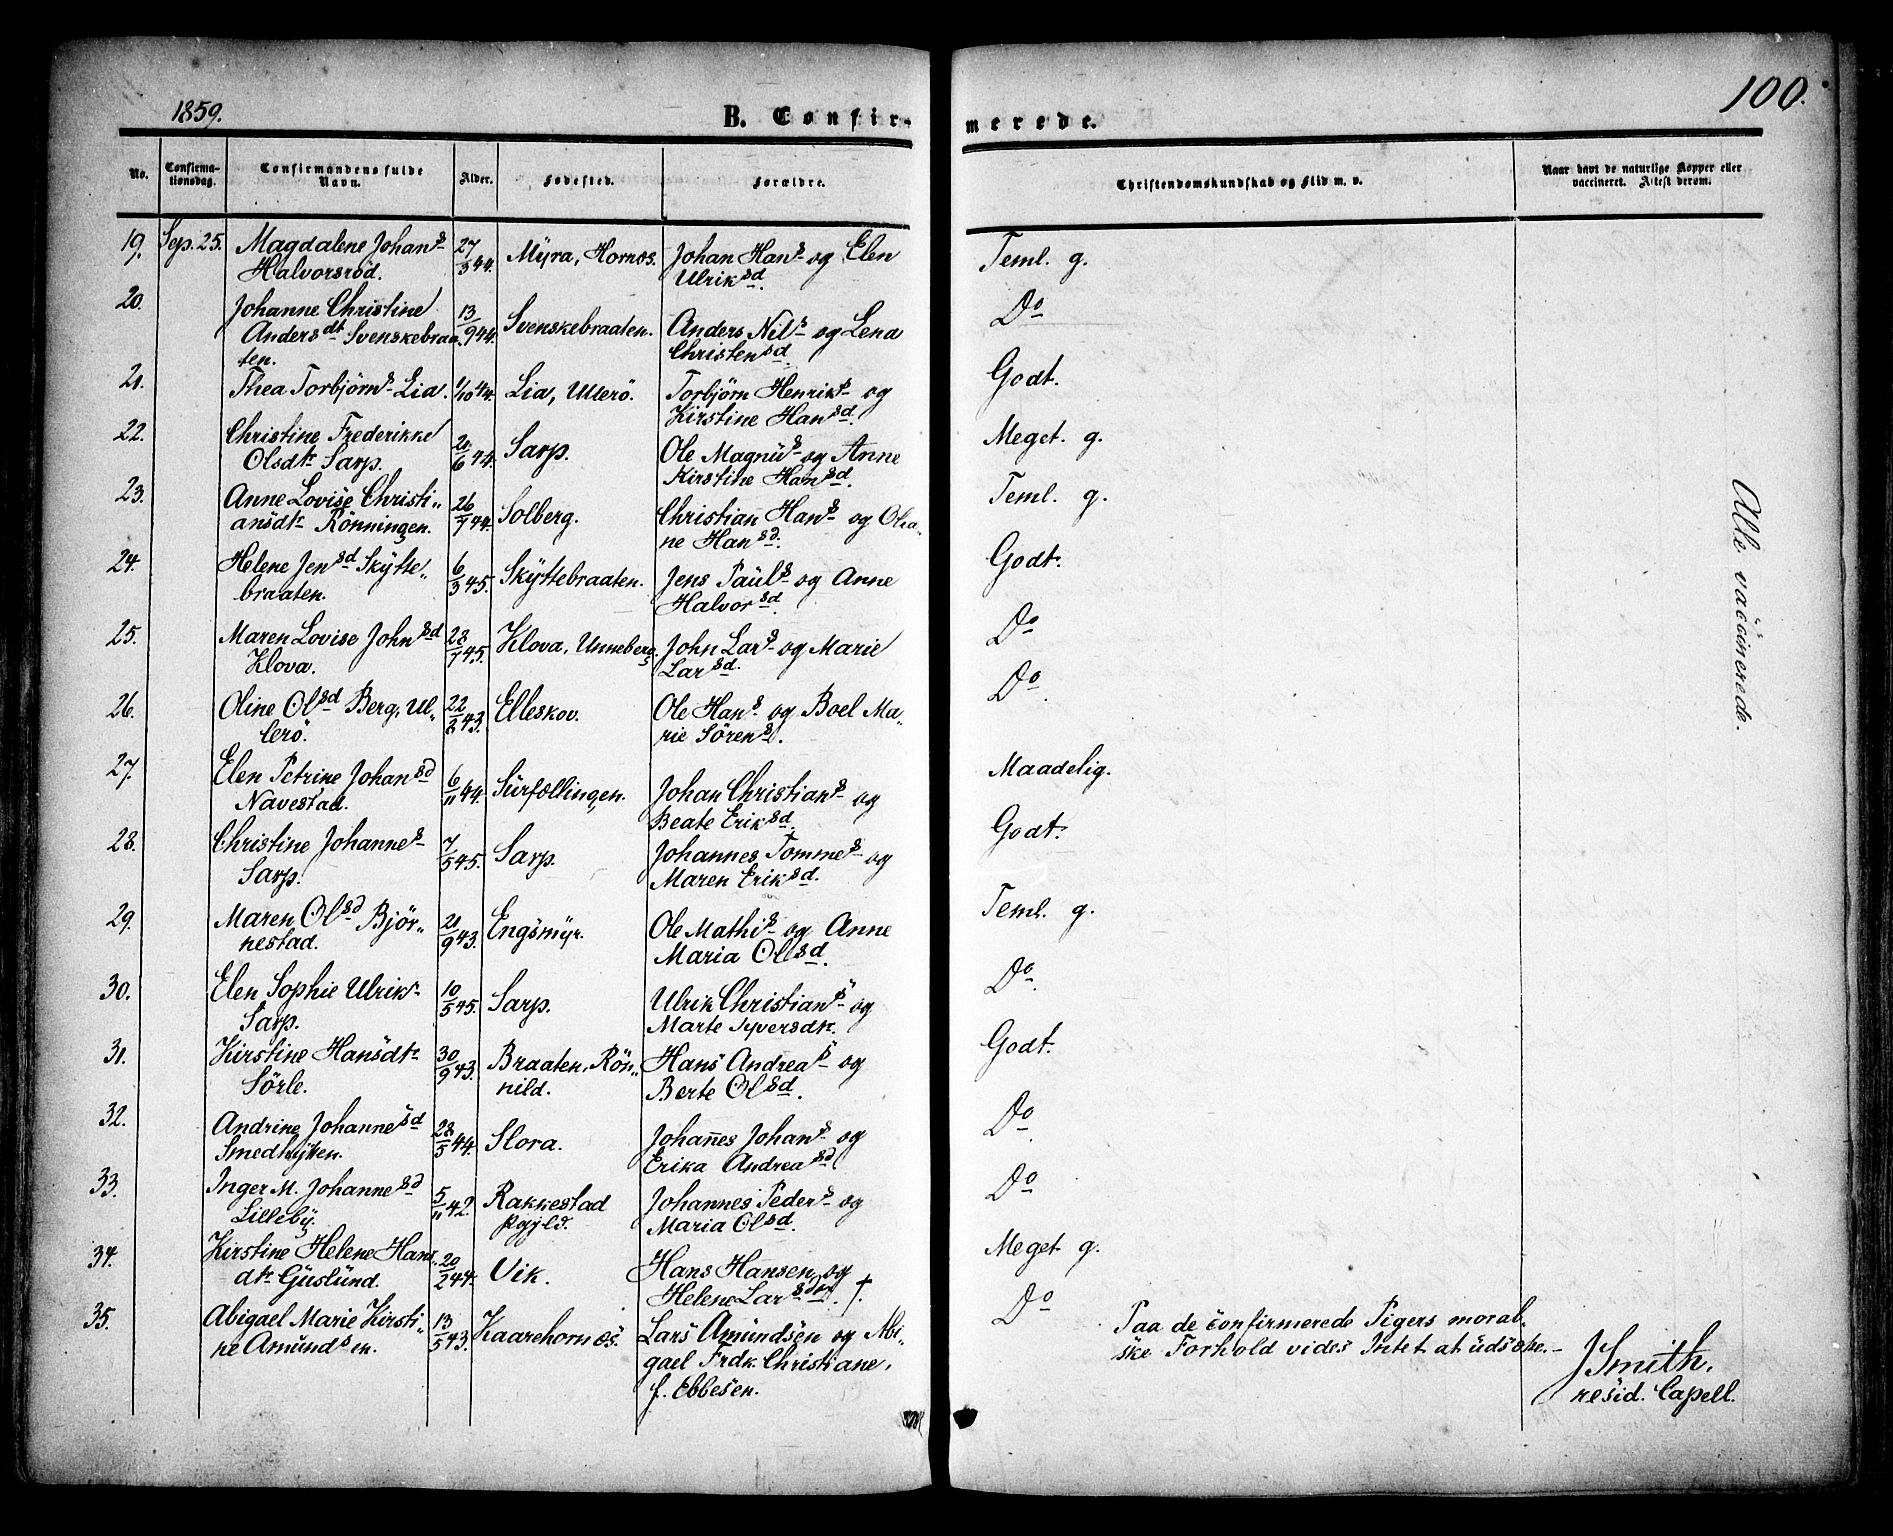 1859.
B. Confir-
merede.
100.
No.
Confirma-
tionsdag.
Confirmandens fulde
Navn.
Alder.
Fødested.
Forældre.
Christendomskundskab og Flid m. v.
Naar havt de naturlige Kopper eller
vaccineret. Attest derom.
19. Sep. 25. Magdalene Johans 27/3 44. Myra, Hornæs. Johan Hans og Elen Teml. g.
Halvorsröd. Ulriksd.
20. Johanne Christine 13/9 44. Svenskebraaten. Anders Nils og Lena Do
Andersdt Svenskebraa Christensd.
ten.
21. Thea Torbjörns Lia. 1/10 44. Lia, Ullerö. Torbjörn Henriks og Godt.
Kirstine Hansd.
22. Christine Frederikke 21/6 44. Sarp. Ole Magnus og Anne Meget g.
Olsdtr Sarp. Kirstine Hansd.
23. Anne Lovise Christi„ 26/7 44. Solberg. Christian Hans og Olea„ Teml. g.
ansdtr Rönningen. ne Hansd.
24. Helene Jensd Skytte„ 6/3 45. Skyttebraaten. Jens Pauls og Anne Godt.
braaten. Halvorsd.
25. Maren Lovise Johnsd 28/7 45. Klova, Unneberg. John Lars og Marie Do
Klova. Larsd.
26. Oline Olsd Berg, Ul„ 22/2 43. Elleskov. Ole Hans og Boel Ma„ Do
lerö. rie Sörens.
27. Elen Petrine Johansd 6/11 44. Surfællingen. Johan Christians og Maadelig.
Navestad. Beate Eriksd.
28. Christine Johannes 7/5 45. Sarp. Johannes Tommes og Godt.
Sarp. Maren Eriksd.
29. Maren Olsd Björ„ 21/9 43. Engsmyr. Ole Mathis og Anne Teml. g.
nestad. Maria Olsd.
30. Elen Sophie Ulriks 10/5 45. Sarp. Ulrik Christians og Do
Sarp. Marte Syversdtr.
31. Kirstine Hansdtr 30/9 43. Braaten, Rön„ Hans Andreas og Godt.
Sörle. nild. Berte Olsd.
32. Andrine Johannesd 28/5 44. Slora. Johannes Johans og Do
Smedhytten. Erika Andreasd.
33. Inger M. Johannesd 5/11 42. Rakkestad Johannes Peders og Do
Lilleby. Pgjld. Maria Olsd.
34. Kirstine Helene Hans„ 20/2 44. Vik. Hans Hansen og Meget g.
dtr Guslund. Helene Larsdtr. †.
35. Abigael Marie Kirsti„ 13/5 43. Kaarehornæs. Lars Amundsen og Abi„ Do
ne Amundsen. gael Frdk. Christiane,
f. Ebbesen.
Alle vaccinerede.
Paa de confirmerede Pigers moral„
ske Forhold vides Intet at udsætte.
J Smith,
resid. Capell.